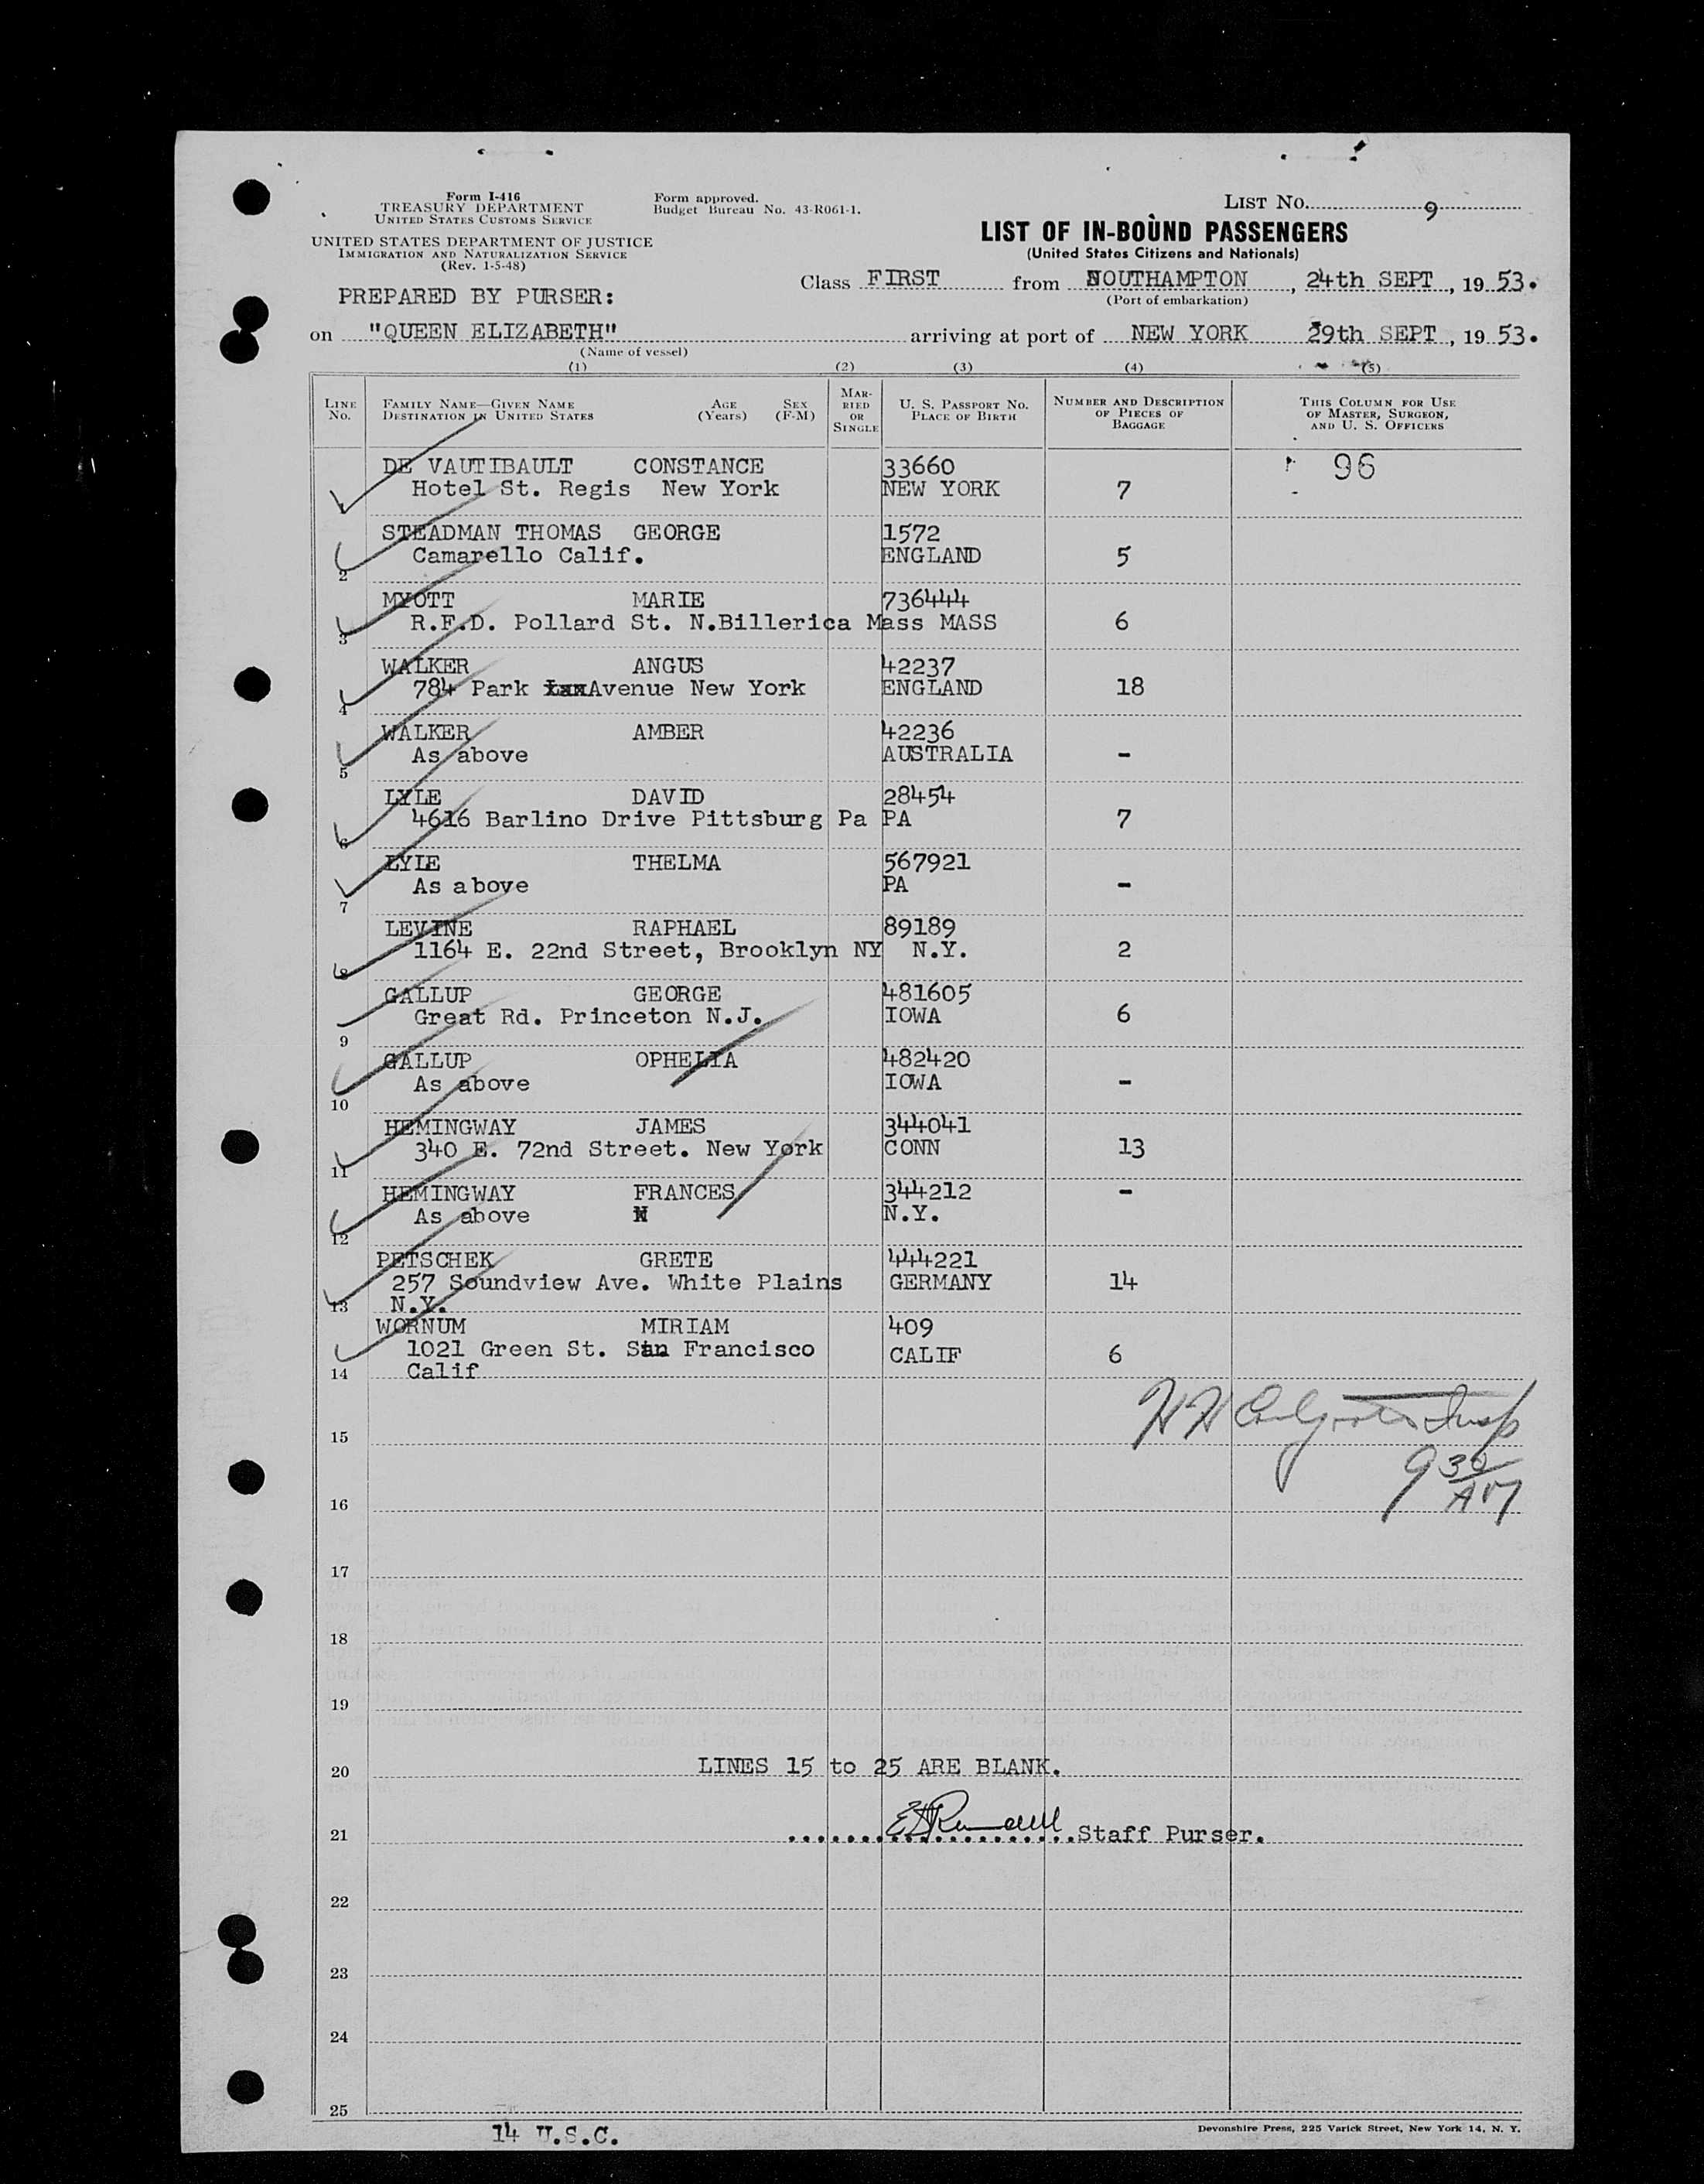 Form I-416
TREASURY DEPARTMENT
UNITED STATES CUSTOMS SERVICE
UNITED STATES DEPARTMENT OF JUSTICE
IMMIGRATION AND NATURALIZATION SERVICE
(Rev. 1-5-48)
Form approved.
Budget Bureau No. 43-R061-1.
LIST NO. 9
LIST OF IN-BOUND PASSENGERS
(United States Citizens and Nationals)
Class FIRST from SOUTHAMPTON, 24th SEPT, 19 53.
(Port of embarkation)
PREPARED BY PURSER:
on "QUEEN ELIZABETH" arriving at port of NEW YORK 29th SEPT, 19 53.
(Name of vessel)
(1) (2) (3) (4) (5)
LINE NO.
FAMILY NAME—GIVEN NAME
DESTINATION IN UNITED STATES
AGE (Years)
SEX (F-M)
MARRIED OR SINGLE
U. S. PASSPORT NO.
PLACE OF BIRTH
NUMBER AND DESCRIPTION OF PIECES OF BAGGAGE
THIS COLUMN FOR USE OF MASTER, SURGEON, AND U. S. OFFICERS
DE VAUTIBAULT CONSTANCE 33660 96
1 Hotel St. Regis New York NEW YORK 7
STEADMAN THOMAS GEORGE 1572
2 Camarello Calif. ENGLAND 5
MYOTT MARIE 736444
3 R.F.D. Pollard St. N.Billerica Mass MASS 6
WALKER ANGUS 42237
4 784 Park Avenue New York ENGLAND 18
WALKER AMBER 42236
5 As above AUSTRALIA -
LYLE DAVID 28454
6 4616 Barlino Drive Pittsburg Pa PA 7
LYLE THELMA 567921
7 As above PA -
LEVINE RAPHAEL 89189
8 1164 E. 22nd Street, Brooklyn NY N.Y. 2
GALLUP GEORGE 481605
9 Great Rd. Princeton N.J. IOWA 6
GALLUP OPHELIA 482420
10 As above IOWA -
HEMINGWAY JAMES 344041
11 340 E. 72nd Street. New York CONN 13
HEMINGWAY FRANCES 344212 -
12 As above N.Y.
PETSCHEK GRETE 444221
257 Soundview Ave. White Plains GERMANY 14
13 N.Y.
WORNUM MIRIAM 409
1021 Green St. San Francisco CALIF 6
14 Calif
15
9 30/AM
16
17
18
19
20 LINES 15 to 25 ARE BLANK.
21 Staff Purser.
22
23
24
25
14 U.S.C.
Devonshire Press, 225 Varick Street, New York 14, N. Y.